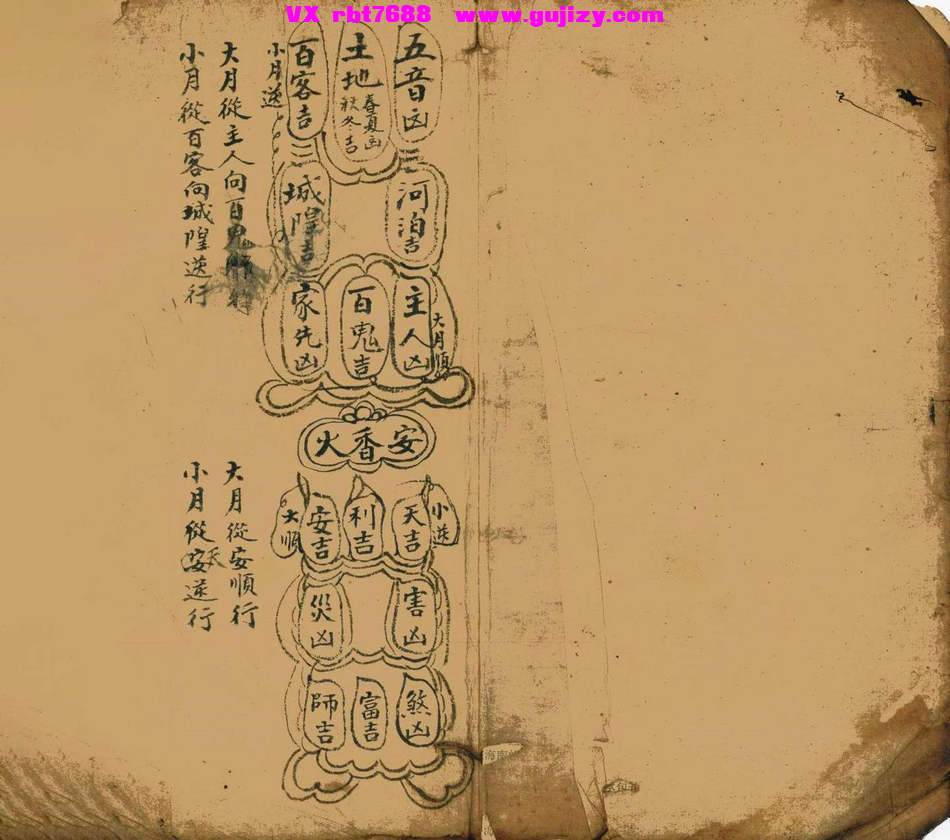 VX rbt7688 www.gujizy.com
五音凶
土地
春夏凶
秋冬吉
百客吉
小月逆
河泊吉
城隍吉
主人凶
大月順
百鬼吉
家先凶
大月從主人向百鬼順
小月從百客向城隍逆行
安香火
小逆
天吉
利吉
安吉
大順
害凶
災凶
煞凶
富吉
師吉
大月從安順行
小月從天逆行